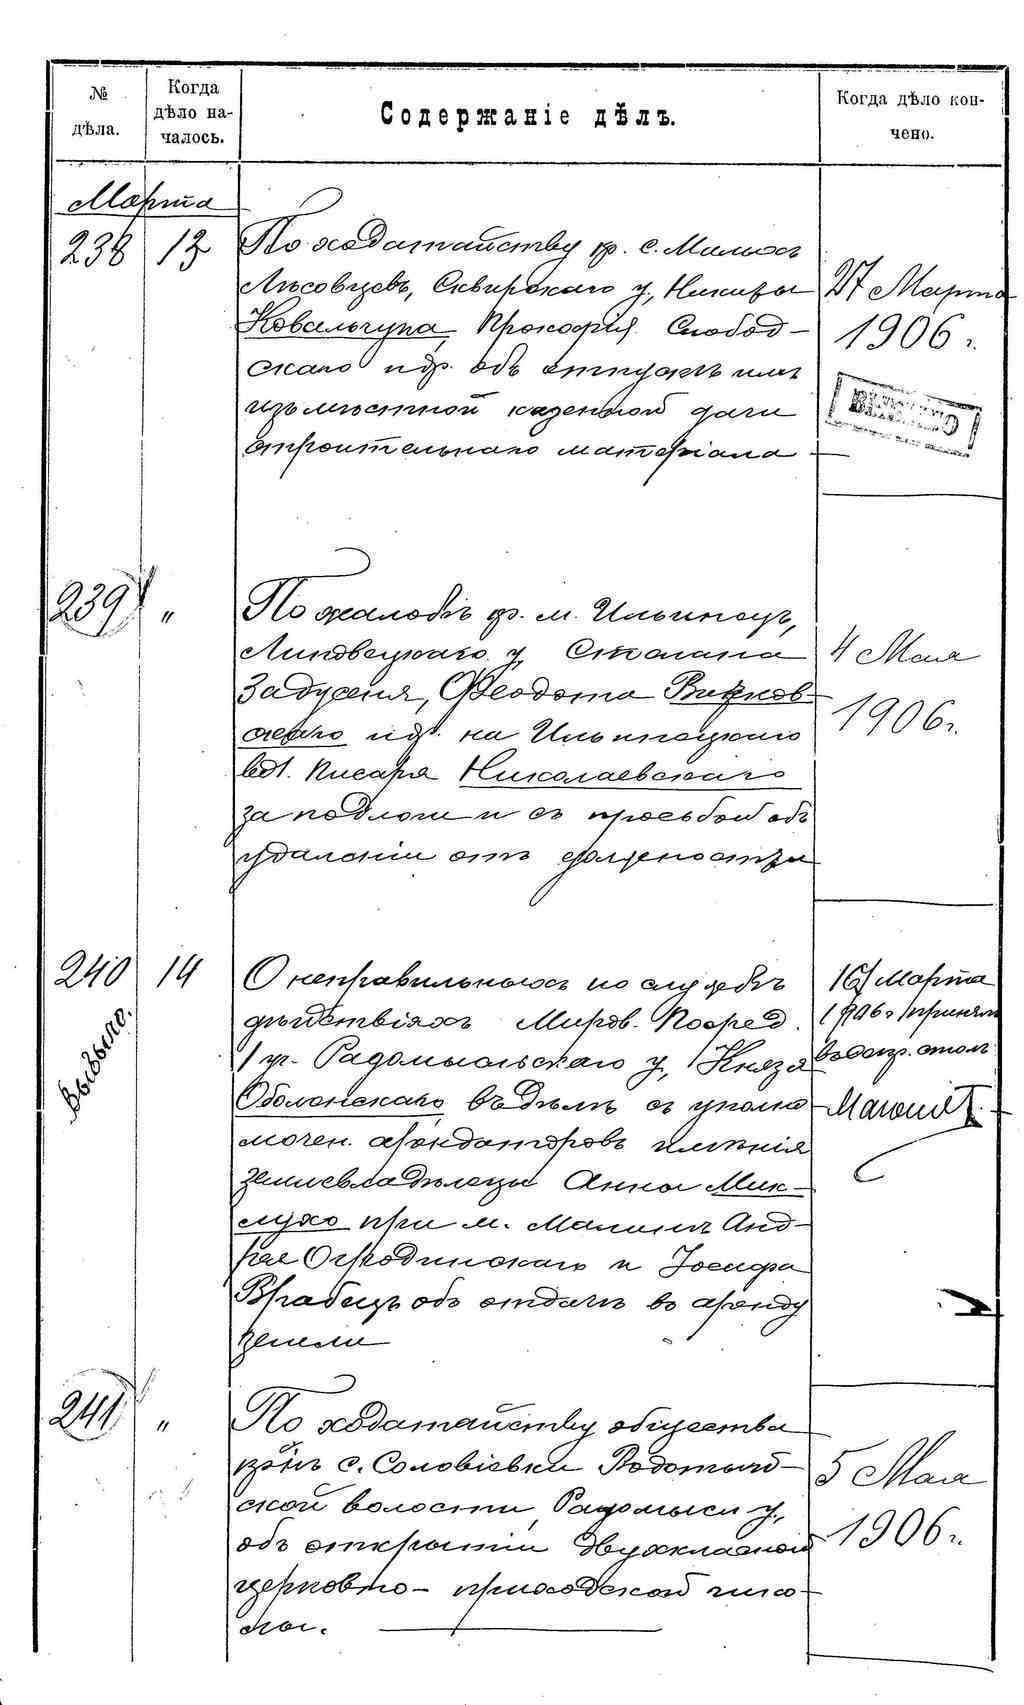 № дѣла.
Когда дѣло началось.
Содержаніе дѣлъ.
Когда дѣло кончено.
Марта
238 13
По ходатайству кр. с. Малыхъ
Лѣсовцевъ, Сквирскаго у., Никиты
Ковальчука, Прокофія Слобод-
скаго и др. объ отпускѣ имъ
изъ мѣстной казенной дачи
строительнаго матеріала
27 Марта
1906 г.
239 "
По жалобѣ кр. м. Ильинецъ,
Липовецкаго у. Степана
Задусеня, Ѳеодота
и др. на Ильинецкаго
вол. писаря Николаевскаго
за подлоги и съ просьбой объ
удаленіи отъ должности
4 Мая
1906 г.
240 14
Выбыло.
О неправильныхъ по службѣ
дѣйствіяхъ Миров. Посред.
1 уч. Радомысльскаго у., Князя
Оболенскаго въ дѣлѣ съ уполно
мочен. арендаторовъ имѣнія
землевладѣлецы Анны Мик-
лухо при м. Малинѣ Анд-
рея Огродинскаго и Іосифа
Врабецъ объ отдачѣ въ аренду
земли
16 Марта
1906 г принялъ
столъ
241 "
По ходатайству общества
с. Соловіевки
ской волости, Радомысл у.,
объ открытіи двухклассной
церковно-приходской шко
лы.
5 Мая
1906 г.